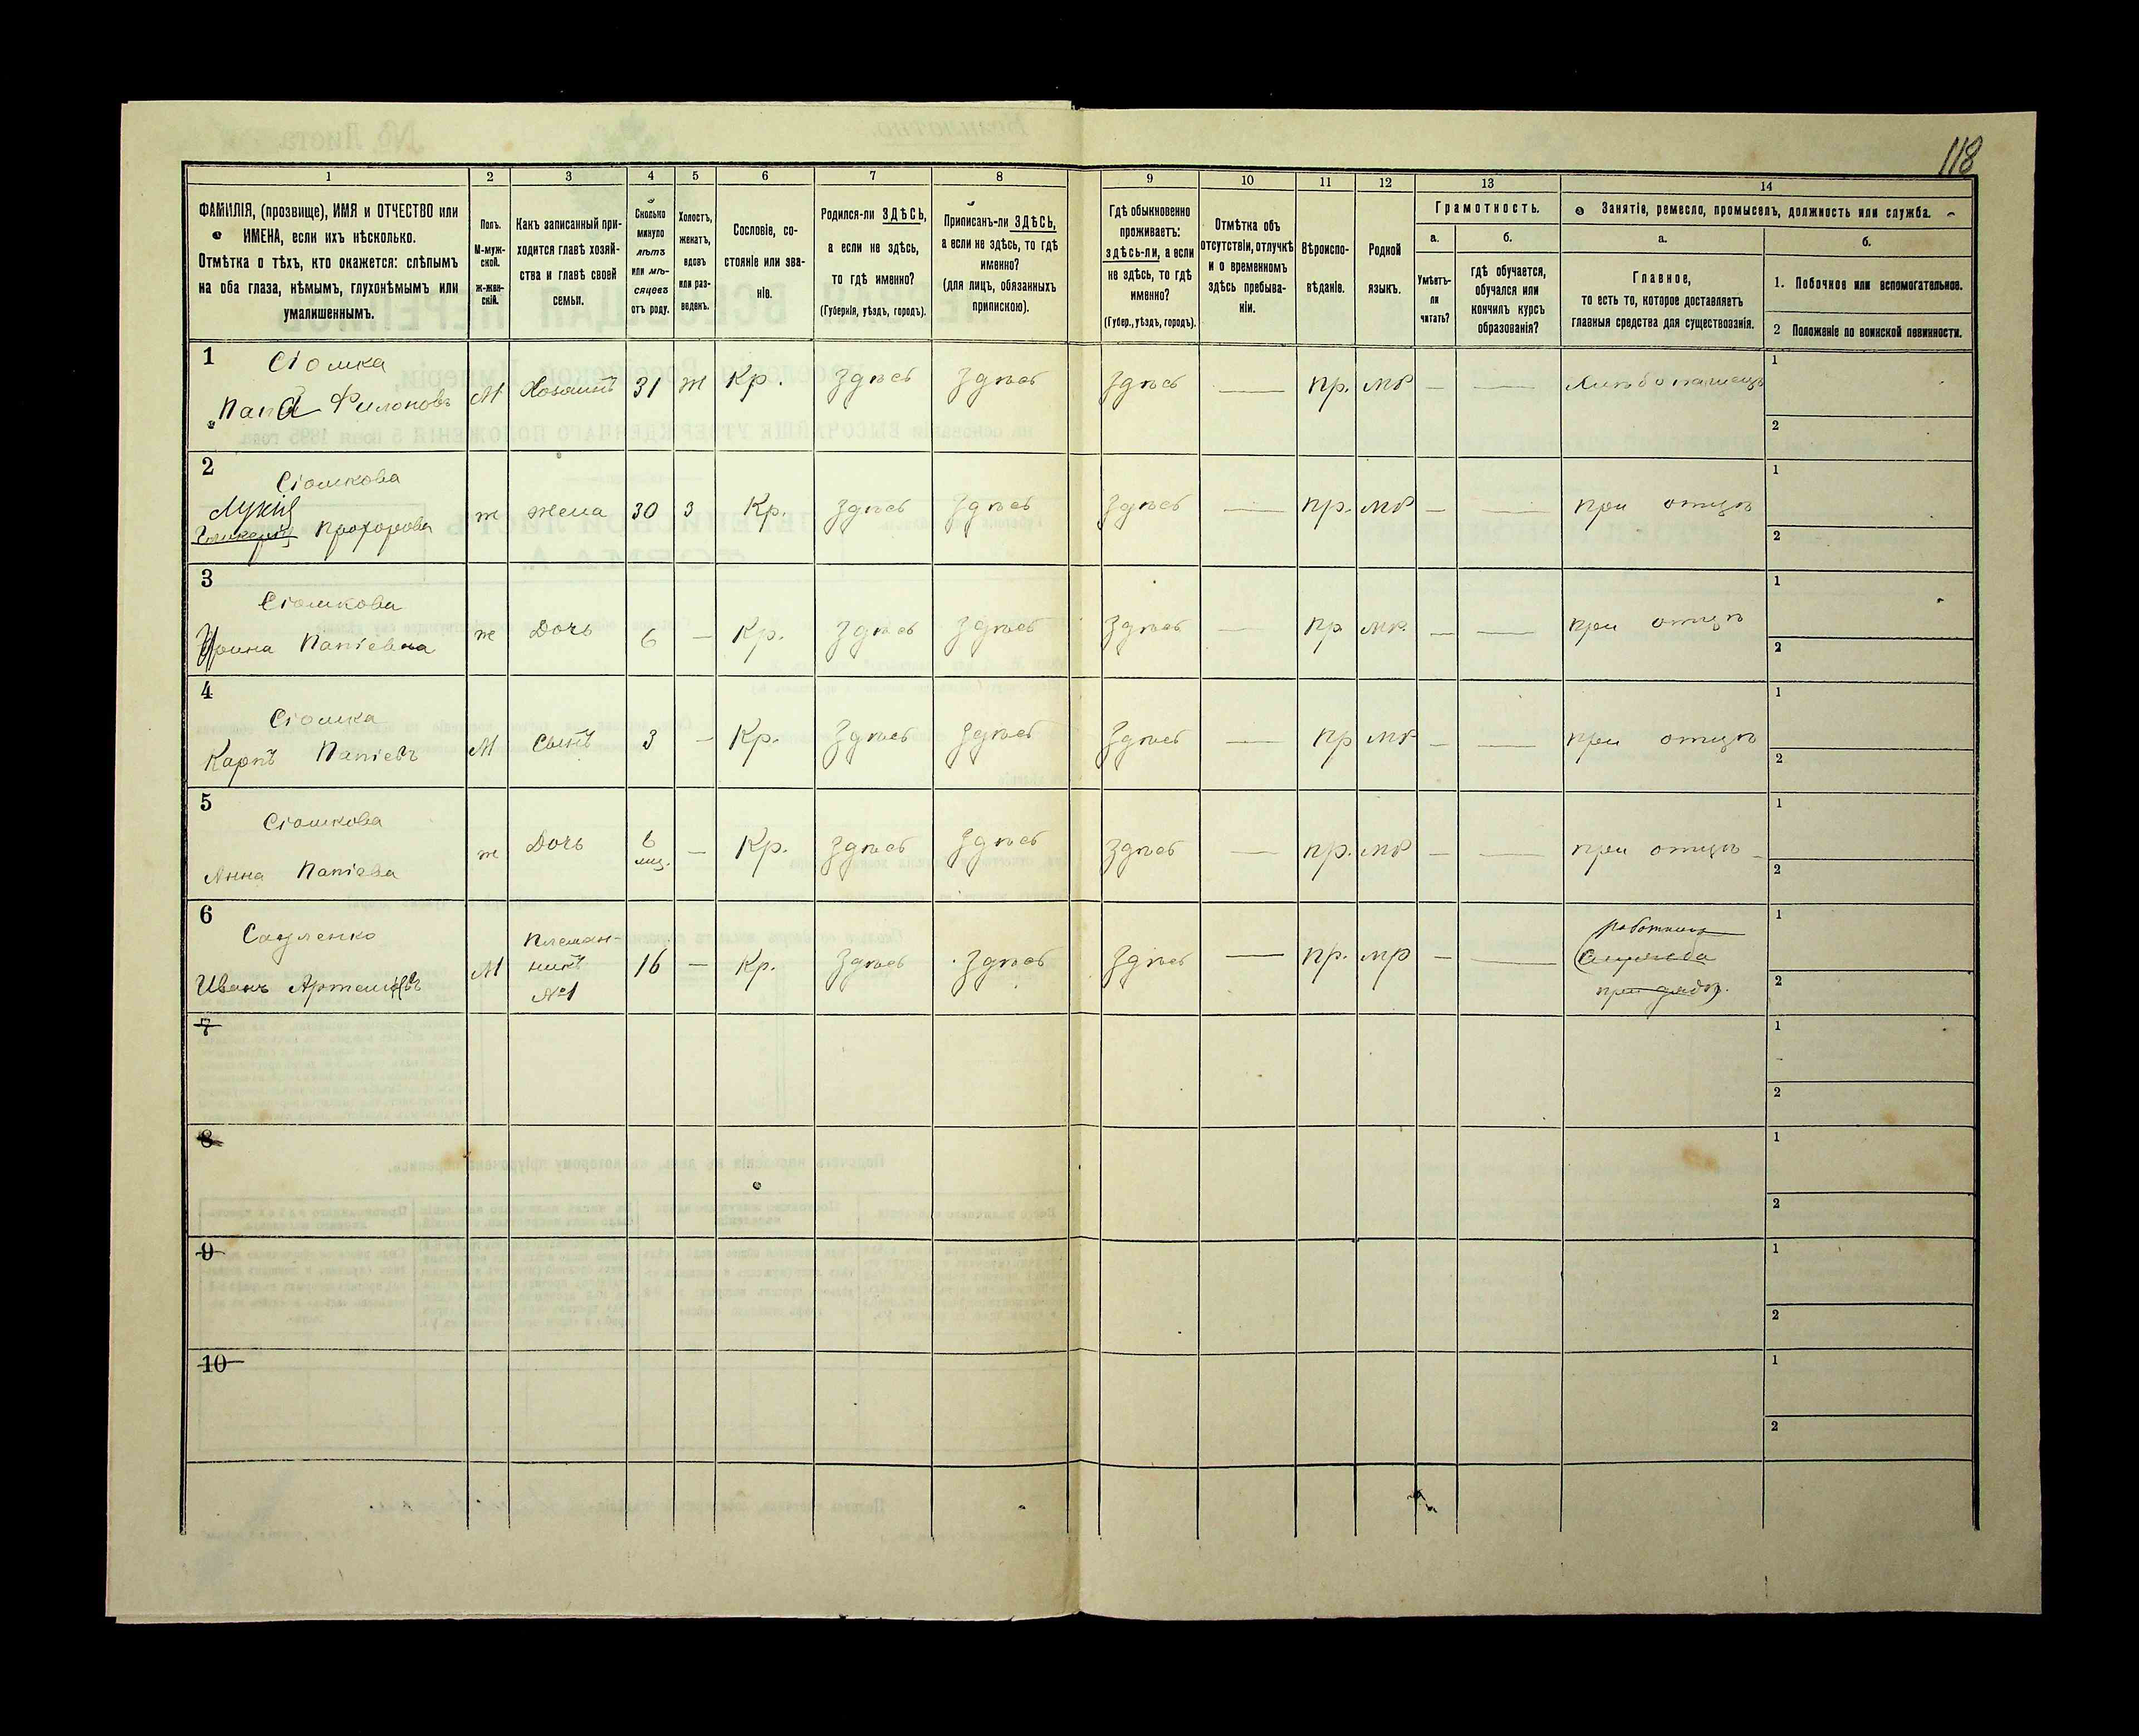 118
1
2
3
4
5
6
7
8
9
10
11
12
13
14
ФАМИЛІЯ, (прозвище), ИМЯ и ОТЧЕСТВО или
ИМЕНА, если ихъ нѣсколько.
Отмѣтка о тѣхъ, кто окажется: слѣпымъ
на оба глаза, нѣмымъ, глухонѣмымъ или
умалишеннымъ.
Полъ.
М-муж-
ской.
ж-жен-
скій.
Какъ записанный при-
ходится главѣ хозяй-
ства и главѣ своей
семьи.
Сколько
минуло
лѣтъ
или мѣ-
сяцевъ
отъ роду.
Холостъ,
женатъ,
вдовъ
или раз-
веденъ.
Сословіе, со-
стояніе или зва-
ніе.
Родился-ли ЗДѢСЬ,
а если не здѣсь,
то гдѣ именно?
(Губернія, уѣздъ, городъ).
Приписанъ-ли ЗДѢСЬ,
а если не здѣсь, то гдѣ
именно?
(для лицъ, обязанныхъ
припискою).
Гдѣ обыкновенно
проживаетъ:
здѣсь-ли, а если
не здѣсь, то гдѣ
именно?
(Губер., уѣздъ, городъ).
Отмѣтка объ
отсутствіи, отлучкѣ
и о временномъ
здѣсь пребыва-
ніи.
Вѣроиспо-
вѣданіе.
Родной
языкъ.
Грамотность.
а.
Умѣетъ-
ли
читать?
б.
гдѣ обучается,
обучался или
кончилъ курсъ
образованія?
Занятіе, ремесло, промыселъ, должность или служба.
а.
Главное,
то есть то, которое доставляетъ
главныя средства для существованія.
б.
1. Побочное или вспомогательное.
2 Положеніе по воинской повинности.
1
Сіомка
Папа Филоновъ
М Хозяинъ 31 ж Кр. Здѣсь Здѣсь Здѣсь — пр. мр — — Хлѣбопашецъ
1
2
2
Сіомкова
Лукія
Прохорова
ж жена 30 з Кр. Здѣсь Здѣсь Здѣсь — пр. мр — — при отцѣ
1
2
3
Сіомкова
Ирина Папіевна
ж Дочь 6 — Кр. Здѣсь Здѣсь Здѣсь — пр мр. — — при отцѣ
1
2
4
Сіомка
Карпъ Папіевъ
М Сынъ 3 — Кр. Здѣсь Здѣсь Здѣсь — пр мр — — при отцѣ
1
2
5
Сіомкова
Анна Папіева
ж Дочь 6 мц. — Кр. Здѣсь Здѣсь Здѣсь — пр. мр — — при отцѣ
1
2
6
Иванъ
М Племян-
никъ
№1
16 — Кр. Здѣсь Здѣсь Здѣсь — пр. мр — —
работникъ
при дядѣ.
1
2
7
1
2
8
1
2
9
1
2
10
1
2